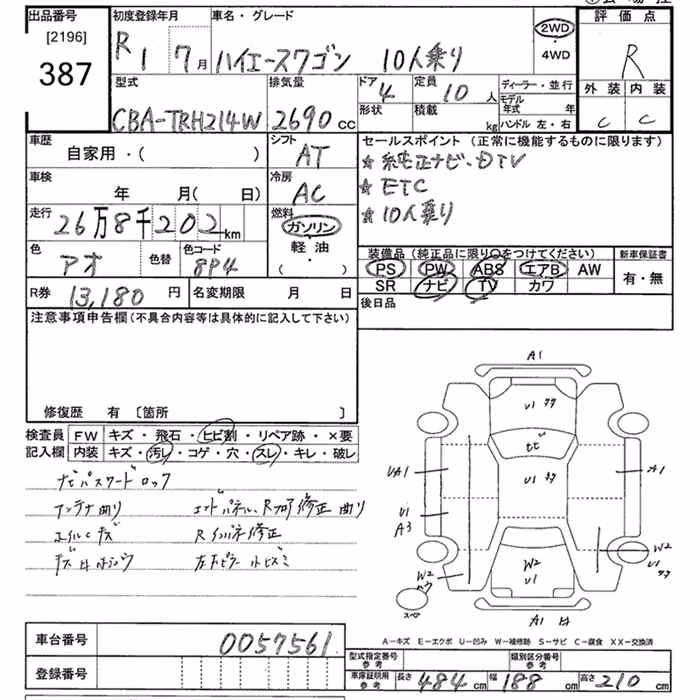 出品番号 初度登録年月 車名・グレード 評価点
[2196]
387 R1 7月 ハイエースワゴン 10人乗り 2WD・4WD R
外装 内装
C C
型式 排気量 ドア 定員 ディーラー・並行
CBA-TRH214W 2690cc 4 10人 モデル年式 年
形状 積載 kg ハンドル 左・右
車歴 シフト セールスポイント (正常に機能するものに限ります)
自家用・( ) AT ★純正ナビ、DTV
車検 冷房 ★ETC
年 月(日) AC ★10人乗り
走行 燃料
26万8千202km ガソリン・軽油・( )
色 色替 色コード 装備品 (純正品に限り○をつけてください) 新車保証書
アオ 8P4 PS PW ABS エアB AW 有・無
SR ナビ TV カワ
R券 13,180円 名変期限 月 日 後日品
注意事項申告欄(不具合内容等は具体的に記入して下さい)
修復歴 有 〔箇所 〕
検査員 FW キズ・飛石・ヒビ割・リペア跡・×要
記入欄 内装 キズ・汚レ・コゲ・穴・スレ・キレ・破レ
ナビパスワードロック
アンテナ曲り エンドパネル、Rフロア修正 曲り
ホイルCキズ Rインパネ修正
A1
U1
ヒビ
U1
UA1 A1
U1
A3
W2
U1
W2
W2
U1
スペア
A1
A－キズ E－エクボ U－凹み W－補修跡 S－サビ C－腐食 XX－交換済
車台番号 0057561
登録番号
型式指定番号 参考 類別区分番号 参考
車庫証明用 参考 長さ 484cm 幅 188cm 高さ 210cm